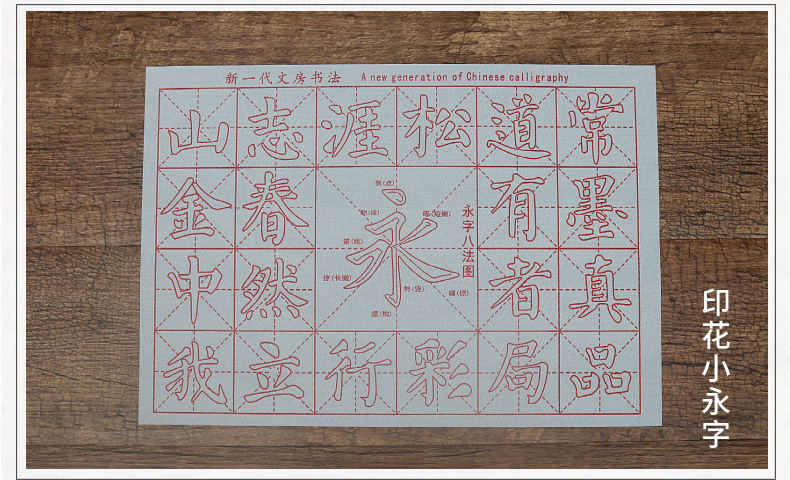 新一代文房书法 A new generation of Chinese calligraphy
山志涯松道常
金春有墨
中然者真
我立行彩局品
永
永字八法图
侧(点)
策(挑)
掠(长撇)
努(竖)
磔(捺)
趯(钩)
印花小永字